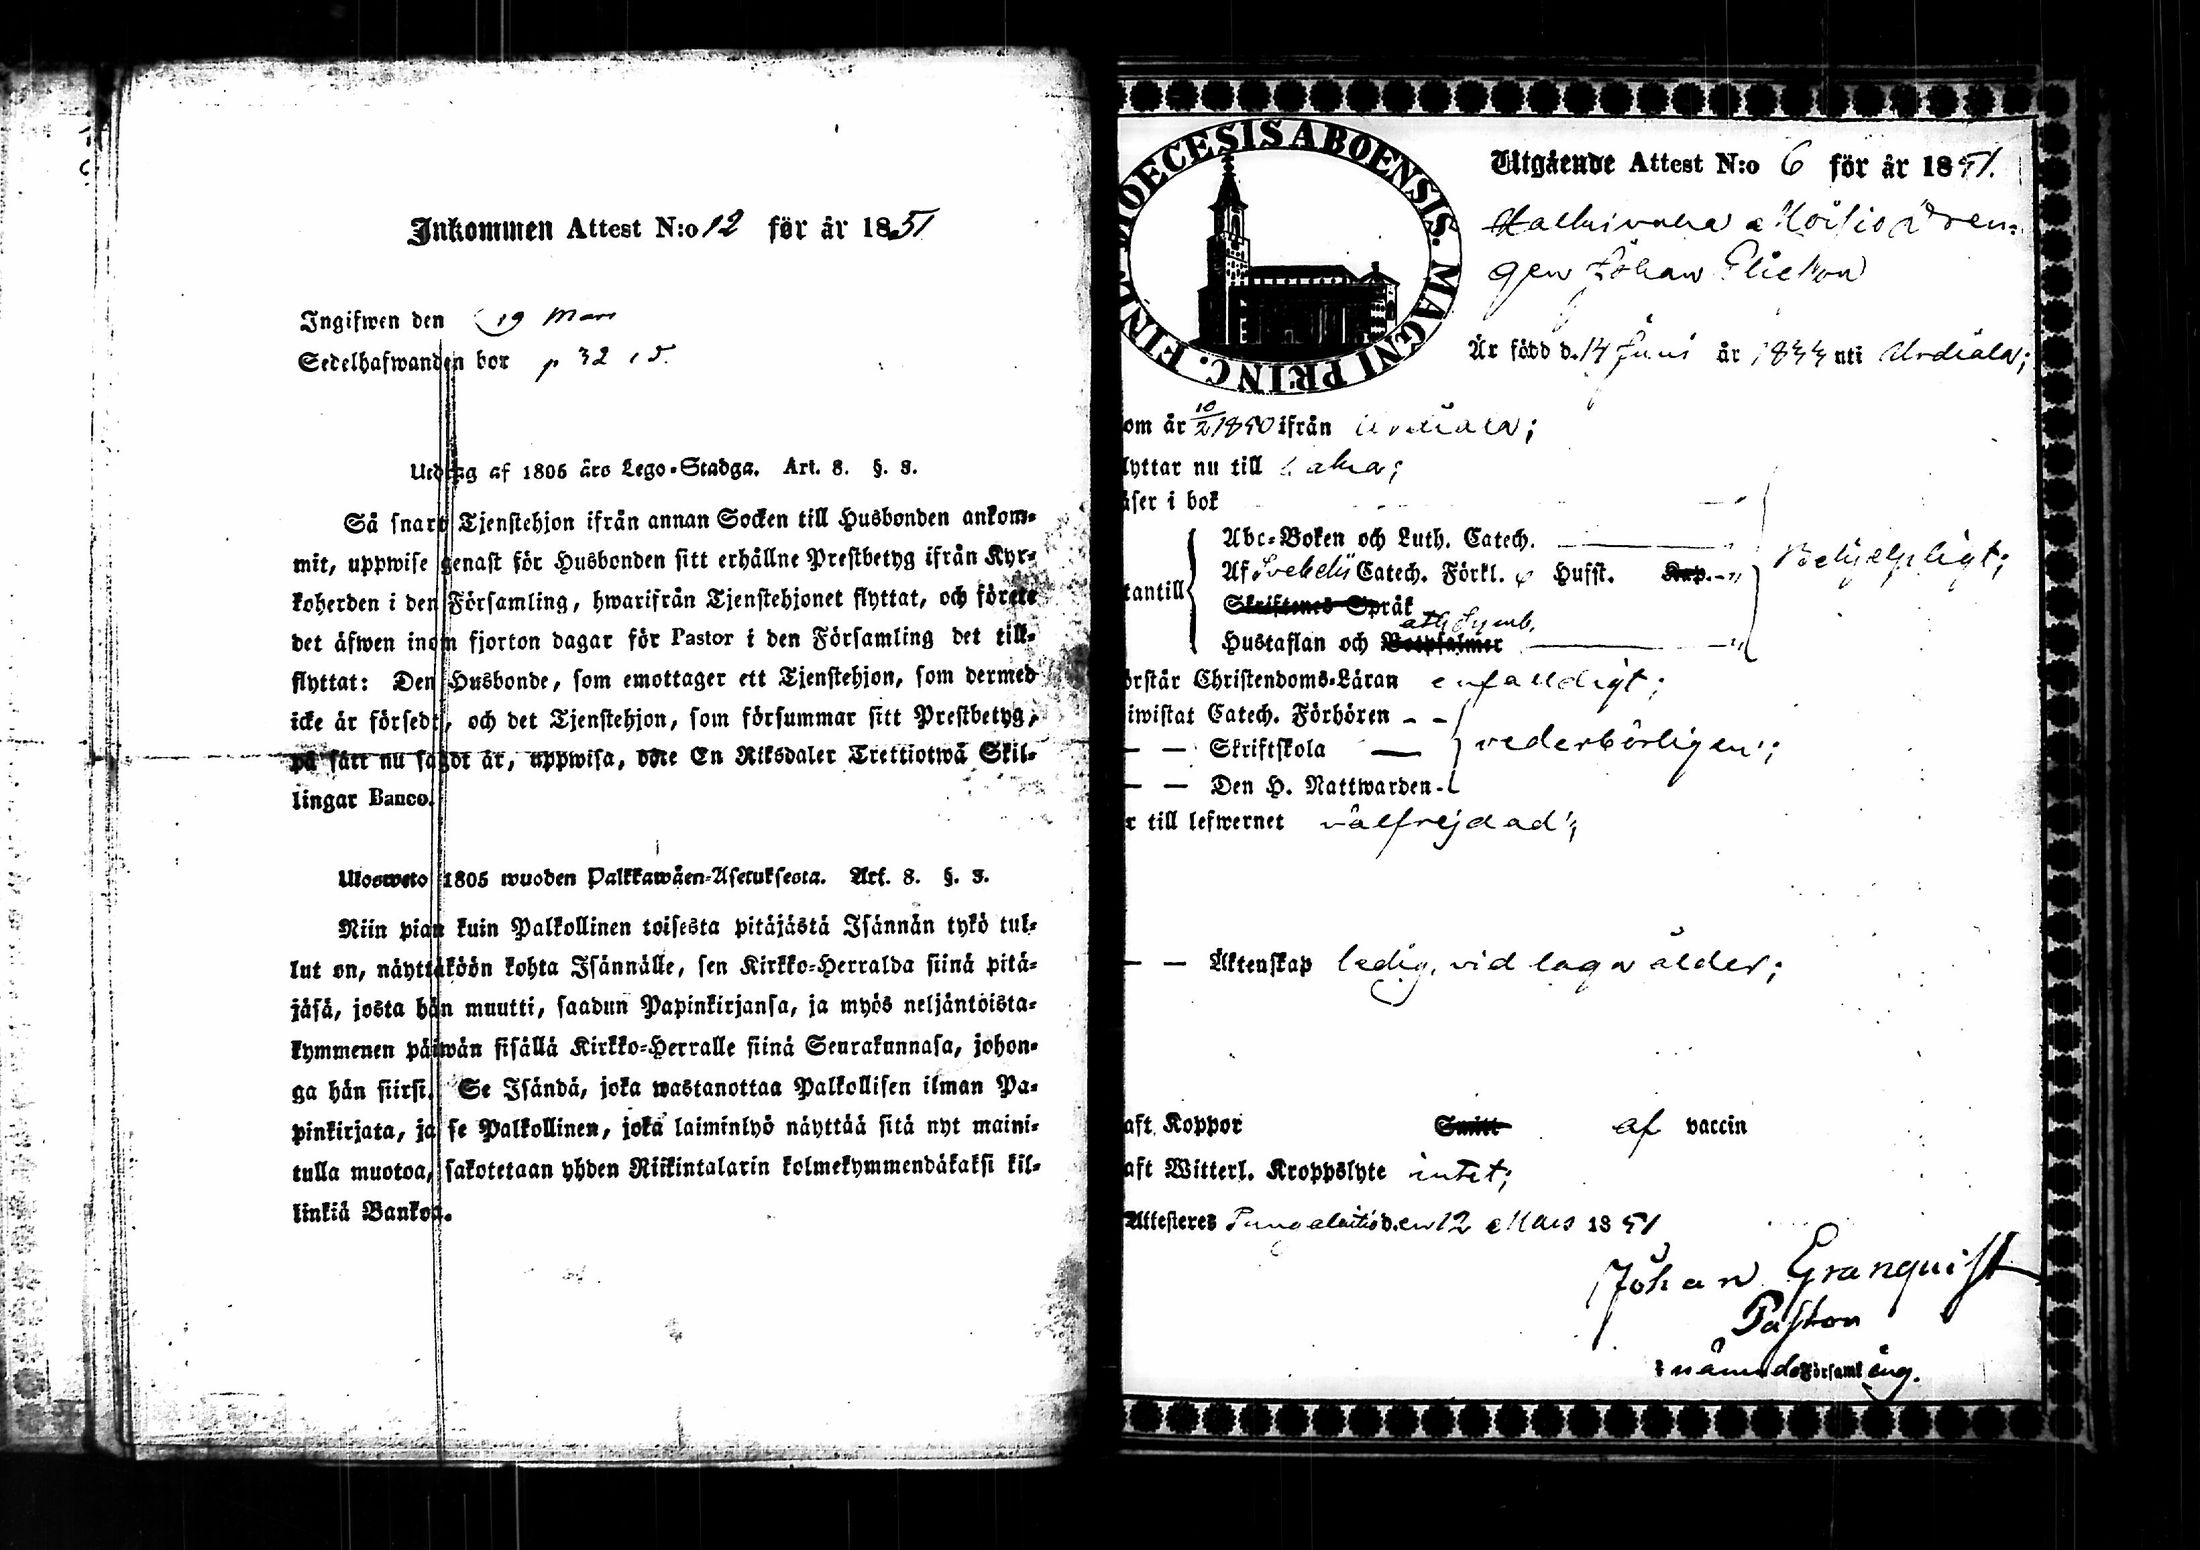 Inkommen Attest N:o 12 för år 1851
Ingifwen den 19 Mars
Sedelhafwanden bor p 32
Utdrag af 1805 års Lego-Stadga. Art. 8. §. 3.
Så snart Tjenstehjon ifrån annan Socken till Husbonden ankom-
mit, uppwise genast för Husbonden sitt erhållne Prestbetyg ifrån Kyr-
koherden i den Församling, hwarifrån Tjenstehjonet flyttat, och förete
det äfwen inom fjorton dagar för Pastor i den Församling det till-
flyttat: Den Husbonde, som emottager ett Tjenstehjon, som dermed
icke är försedt, och det Tjenstehjon, som försummar sitt Prestbetyg,
på sätt nu sagdt är, uppwisa, böte En Riksdaler Trettiotwå Skil-
lingar Banco.
Ulosweto 1805 wuoden Palkkawäen-Asetuksesta. Art. 8. §. 3.
Niin pian kuin Palkollinen toisesta pitäjästä Isännän tykö tul-
lut on, näyttäköön kohta Isännälle, sen Kirkko-Herralda siinä pitä-
jäsä, josta hän muutti, saadun Papinkirjansa, ja myös neljäntoista-
kymmenen päiwän sisällä Kirkko-Herralle siinä Seurakunnasa, johon-
ga hän siirsi. Se Isändä, joka wastanottaa Palkollisen ilman Pa-
pinkirjata, ja se Palkollinen, joka laiminlyö näyttää sitä nyt maini-
tulla muotoa, sakotetaan yhden Riikintalarin kolmekymmendäkaksi kil-
linkiä Bankoa.
DIOECESIS ABOENSIS. MAGNI PRINC. FINL
Utgående Attest N:o 6 för år 1851.
Moisio Dren-
gen Johan
Är född d. 14 Juni år 1833 uti Urdiala;
om år 10/2 1850 ifrån Urdiala;
lyttar nu till
äser i bok
Abc-Boken och Luth. Catech.
Af Svebelii Catech. Förkl. o Hufst. Kap.
tantill
Skriftenes Språk
ath Symb.
Hustaflan och Botpsalmer
Behjelpligt;
örstår Christendoms-Läran enfaldigt;
iwistat Catech. Förhören
Skriftskola vederbörligen;
Den H. Nattwarden
r till lefwernet välfrejdad;
Äktenskap ledig, vid laga ålder;
aft Koppor Smitt af vaccin
aft Witterl. Kroppslyte intet;
Attesteres Pungalaitio d. en 12 Mars 1851
Johan Granquist
Pastor
i nämnde Församl ing.